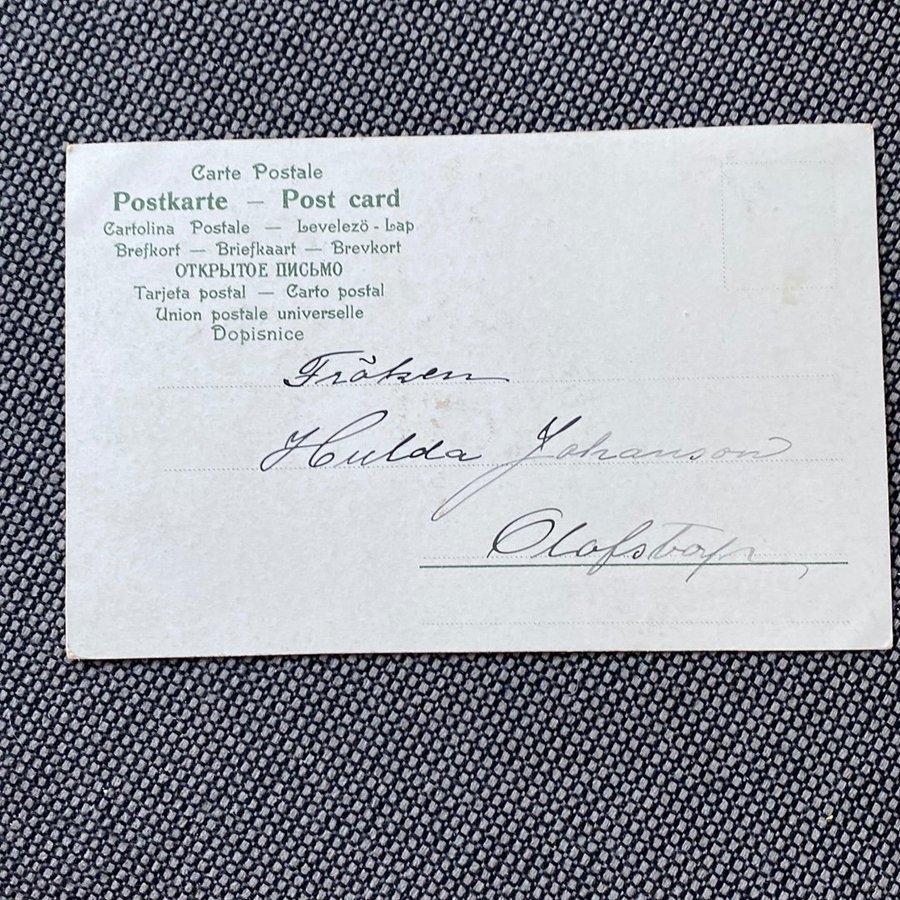 Carte Postale
Postkarte — Post card
Cartolina Postale — Levelező - Lap
Brefkort — Briefkaart — Brevkort
ОТКРЫТОЕ ПИСЬМО
Tarjeta postal — Carto postal
Union postale universelle
Dopisnice
Fröken
Hulda Johanson